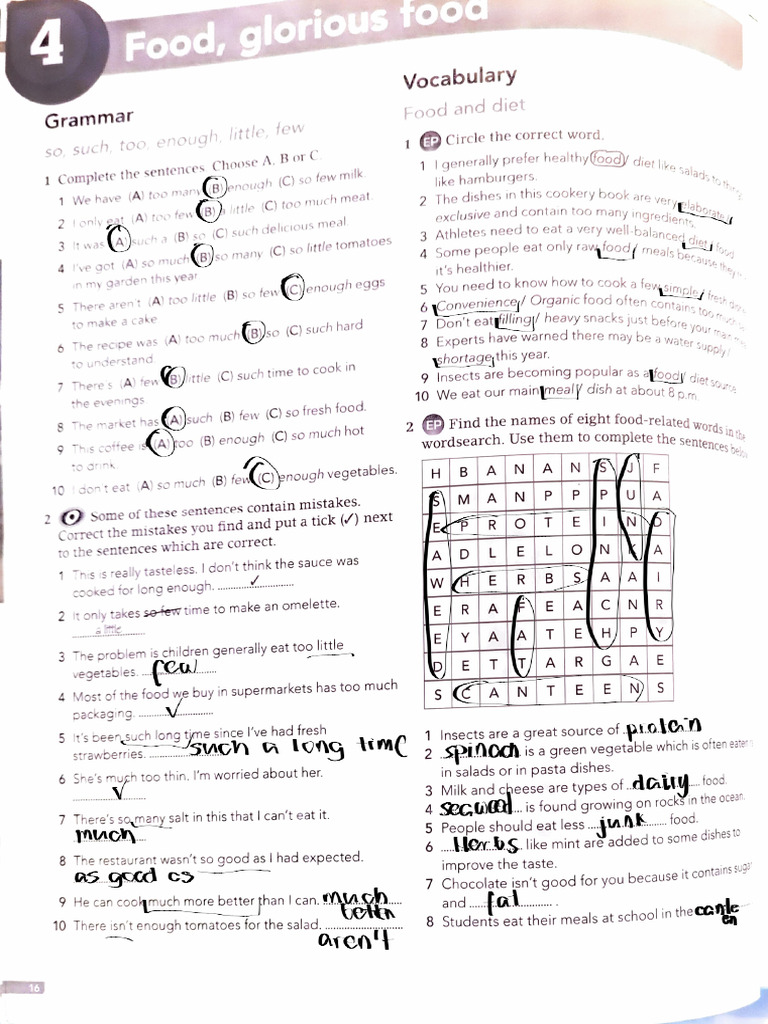 4
Food, glorious food
Grammar
so, such, too, enough, little, few
1 Complete the sentences. Choose A, B or C.
1 We have (A) too many (B) enough (C) so few milk.
2 I only eat (A) too few (B) a little (C) too much meat.
3 It was (A) such a (B) so (C) such delicious meal.
4 I've got (A) so much (B) so many (C) so little tomatoes
in my garden this year.
5 There aren't (A) too little (B) so few (C) enough eggs
to make a cake.
6 The recipe was (A) too much (B) so (C) such hard
to understand.
7 There's (A) few (B) little (C) such time to cook in
the evenings.
8 The market has (A) such (B) few (C) so fresh food.
9 This coffee is (A) too (B) enough (C) so much hot
to drink.
10 I don't eat (A) so much (B) few (C) enough vegetables.
2 Some of these sentences contain mistakes.
Correct the mistakes you find and put a tick (✓) next
to the sentences which are correct.
1 This is really tasteless. I don't think the sauce was
cooked for long enough. ✓
2 It only takes so few time to make an omelette.
a little
3 The problem is children generally eat too little
vegetables. few
4 Most of the food we buy in supermarkets has too much
packaging. ✓
5 It's been such long time since I've had fresh
strawberries. such a long time
6 She's much too thin. I'm worried about her.
✓
7 There's so many salt in this that I can't eat it.
much
8 The restaurant wasn't so good as I had expected.
as good as
9 He can cook much more better than I can. much
better
10 There isn't enough tomatoes for the salad.
aren't
16
Vocabulary
Food and diet
1 EP Circle the correct word.
1 I generally prefer healthy food / diet like salads to things
like hamburgers.
2 The dishes in this cookery book are very elaborate /
exclusive and contain too many ingredients.
3 Athletes need to eat a very well-balanced diet / food.
4 Some people eat only raw food / meals because they
it's healthier.
5 You need to know how to cook a few simple / fresh
6 Convenience / Organic food often contains too much
7 Don't eat filling / heavy snacks just before your main
8 Experts have warned there may be a water supply /
shortage this year.
9 Insects are becoming popular as a food / diet source.
10 We eat our main meal / dish at about 8 p.m.
2 EP Find the names of eight food-related words in the
wordsearch. Use them to complete the sentences below.
H B A N A N S J F
S M A N P P P U A
E P R O T E I N D
A D L E L O N K A
W H E R B S A A I
E R A F E A C N R
E Y A A T E H P Y
D E T T A R G A E
S C A N T E E N S
1 Insects are a great source of protein
2 spinach is a green vegetable which is often eaten
in salads or in pasta dishes.
3 Milk and cheese are types of dairy food.
4 seaweed is found growing on rocks in the ocean.
5 People should eat less junk food.
6 Herbs like mint are added to some dishes to
improve the taste.
7 Chocolate isn't good for you because it contains sugar
and fat .
8 Students eat their meals at school in the cante
en